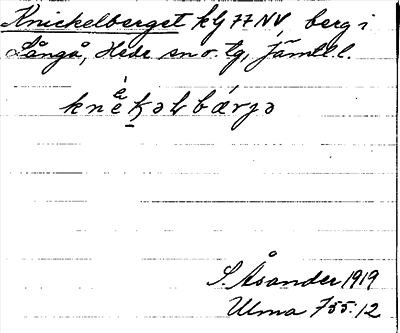 Knickelberget kG 77 NV, berg i
Långå, Hede sn o. tg, Jämtl. l.
S. Åsander 1919
Ulma 755:12